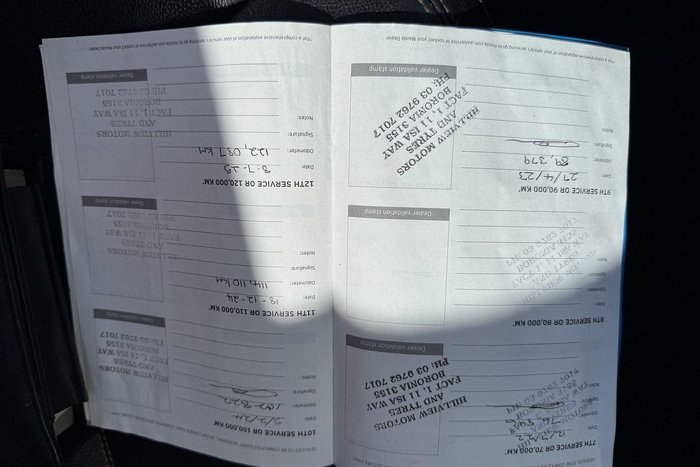 7TH SERVICE OR 70,000 KM*
Date:
Dealer validation stamp
HILLVIEW MOTORS
AND TYRES
FACT 1, 11 ISA WAY
BORONIA 3155
PH: 03 9762 7017
8TH SERVICE OR 80,000 KM*
Date:
Odometer:
Signature:
Notes:
Dealer validation stamp
9TH SERVICE OR 90,000 KM*
Date: 27/4/23
Odometer: 89,379
Signature:
Notes:
Dealer validation stamp
HILLVIEW MOTORS
AND TYRES
FACT 1, 11 ISA WAY
BORONIA 3155
PH: 03 9762 7017
*For a comprehensive explanation of your vehicle's servicing go to mazda.com.au/service or contact your Mazda Dealer
10TH SERVICE OR 100,000 KM*
Date: 5/2/24
Odometer:
Signature:
Notes:
Dealer validation stamp
HILLVIEW MOTORS
AND TYRES
FACT 1, 11 ISA WAY
BORONIA 3155
PH: 03 9762 7017
11TH SERVICE OR 110,000 KM*
Date: 18-12-24
Odometer: 114,110 km
Signature:
Notes:
Dealer validation stamp
HILLVIEW MOTORS
AND TYRES
FACT 1, 11 ISA WAY
BORONIA 3155
PH: 03 9762 7017
12TH SERVICE OR 120,000 KM*
Date: 3-7-25
Odometer: 122,087 km
Signature:
Notes:
Dealer validation stamp
HILLVIEW MOTORS
AND TYRES
FACT 1, 11 ISA WAY
BORONIA 3155
PH: 03 9762 7017
*For a comprehensive explanation of your vehicle's servicing go to mazda.com.au/service or contact your Mazda Dealer